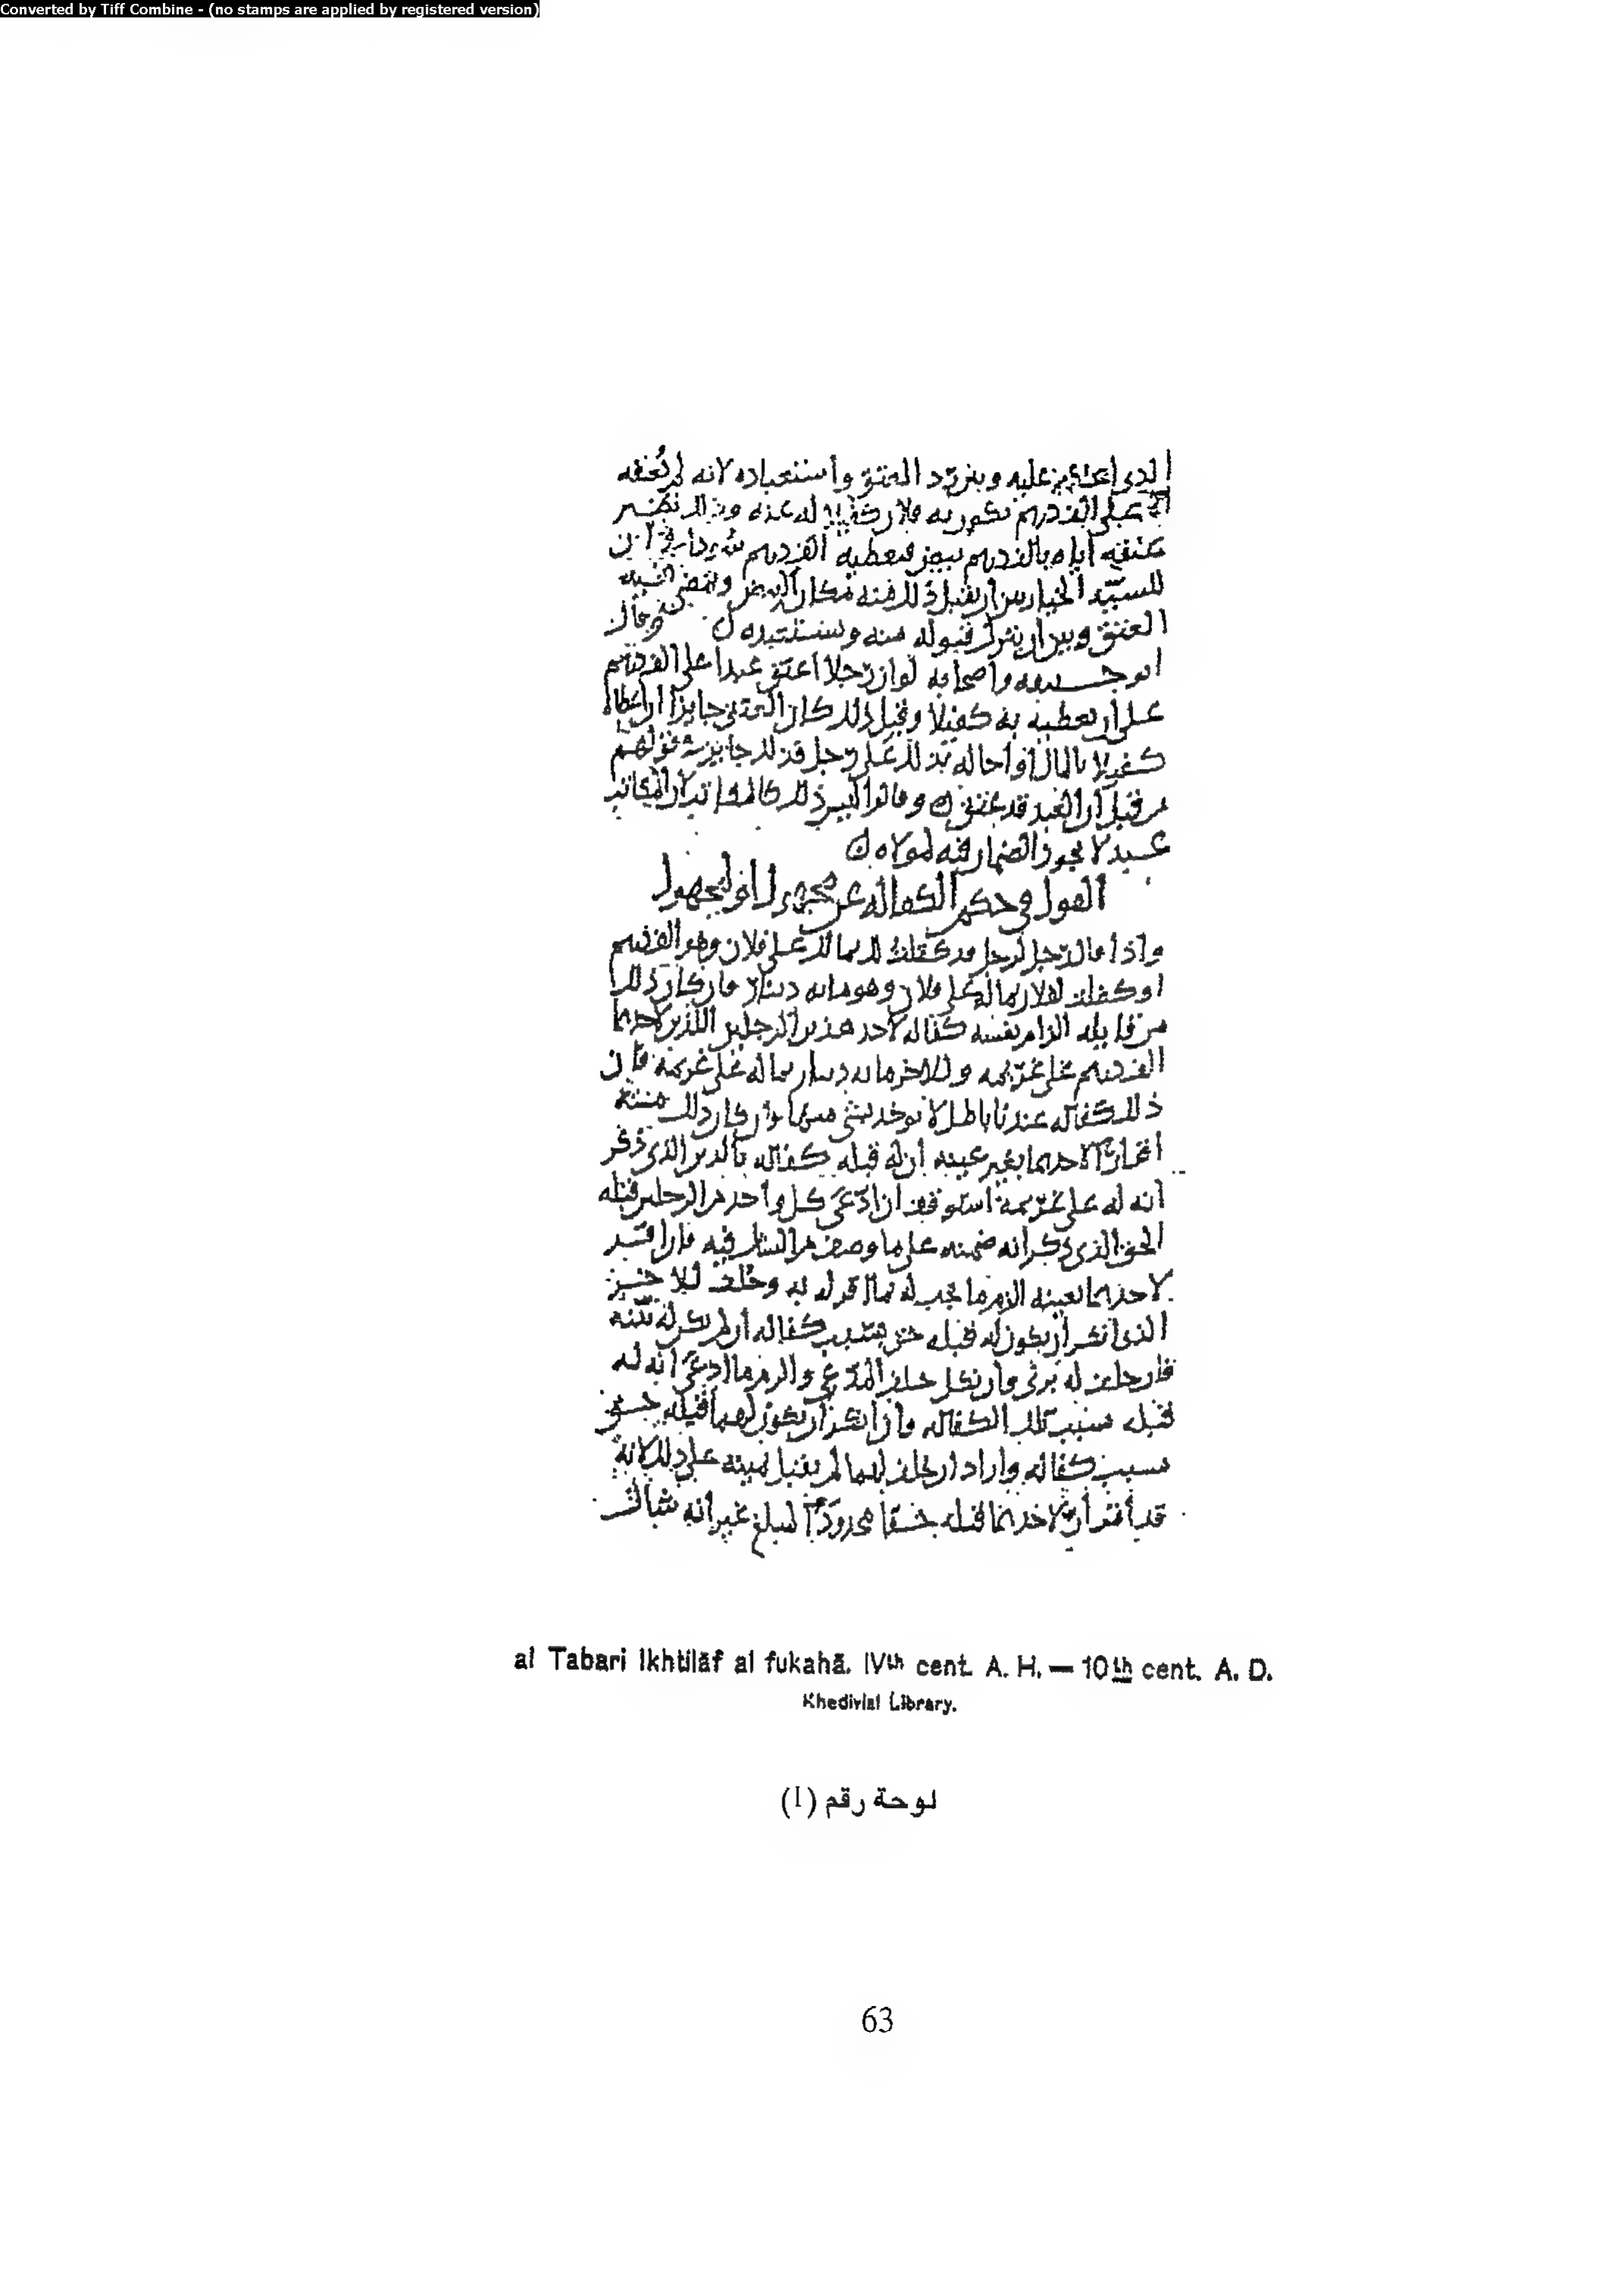 Converted by Tiff Combine - (no stamps are applied by registered version)
عليه وبين رد العتق واستعباده لانه لم يعتقه
على الف درهم
عتقه اياه بالف درهم فيعطيه الف درهم
للسيد الخيار بين ان يقبل ذلك منه
العتق وبين ان يترك قبوله منه وقال
ابو حنيفه واصحابه لو ان رجلا اعتق عبدا على الف درهم
على ان يعطيه به كفيلا وقبل ذلك كان العتق جايزا
كفيلا بالمال او احاله بذلك على رجل جايز
من قبل ان العبد قد عتق وقالوا ليس ذلك كالمكاتب لان المكاتب
عبد لا يجوز الضمان فيه لمولاه
القول في حكم الكفاله عن مجهول او لمجهول
واذا قال رجل لرجل قد كفلت لك بما لك على فلان وهو الف درهم
او كفلت لفلان بما له على فلان وهو مايه دينار فان كان ذلك
من قايله الزام نفسه كفاله لاحد هذين الرجلين اللذين لاحدهما
الف درهم على غريمه وللاخر مايه دينار بماله على غريمه فان
ذلك كفاله عندنا باطل لا يوخذ بشي منهما وان كان ذلك منه
اقرارا لاحدهما بغير عينه ان له قبله كفاله بالدين الذي ذكر
انه له على غريمه استوقف ان ادعى كل واحد من الرجلين قبله
الحق الذي ذكر انه ضمنه على ما وصف من الشك فيه فان اقر
لاحدهما بعينه الزم ما يجب له بما اقر له به وحلف للاخر
الذي انكر ان يكون له قبله حق بسبب كفاله ان لم يكن له بينه
فان حلف له برئ وان نكل حلف المدعي والزم ما ادعى انه له
قبله بسبب تلك الكفاله وان انكر ان يكون لهما قبله حق
بسبب كفاله واراد ان يحلف لهما لم يقبل يمينه على ذلك لانه
قد اقر ان لاحدهما قبله حقا محدود المبلغ غير انه شاك
al Tabari Ikhtilāf al fukahā. IVth cent. A. H. — 10th cent. A. D.
Khedivial Library.
لوحة رقم (1)
63